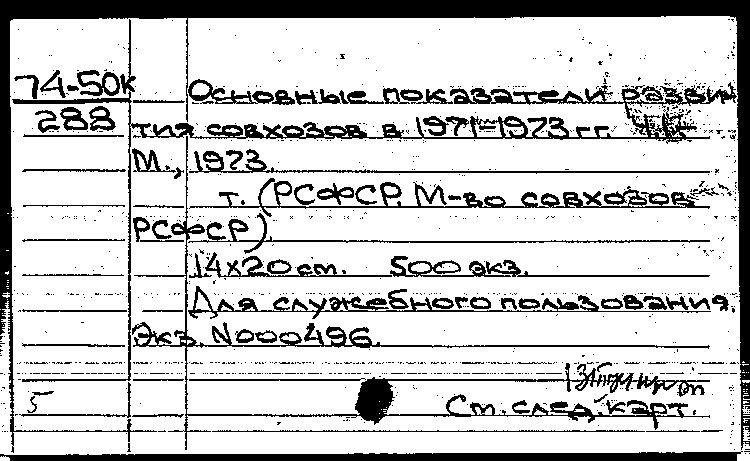 74-50к
288
Основные показатели разви-
тия совхозов в 1971-1973 гг.
М., 1973.
т. (РСФСР. М-во совхозов
РСФСР).
14х20 см. 500 экз.
Для служебного пользования.
Экз. N000496.
5
См. след. карт.